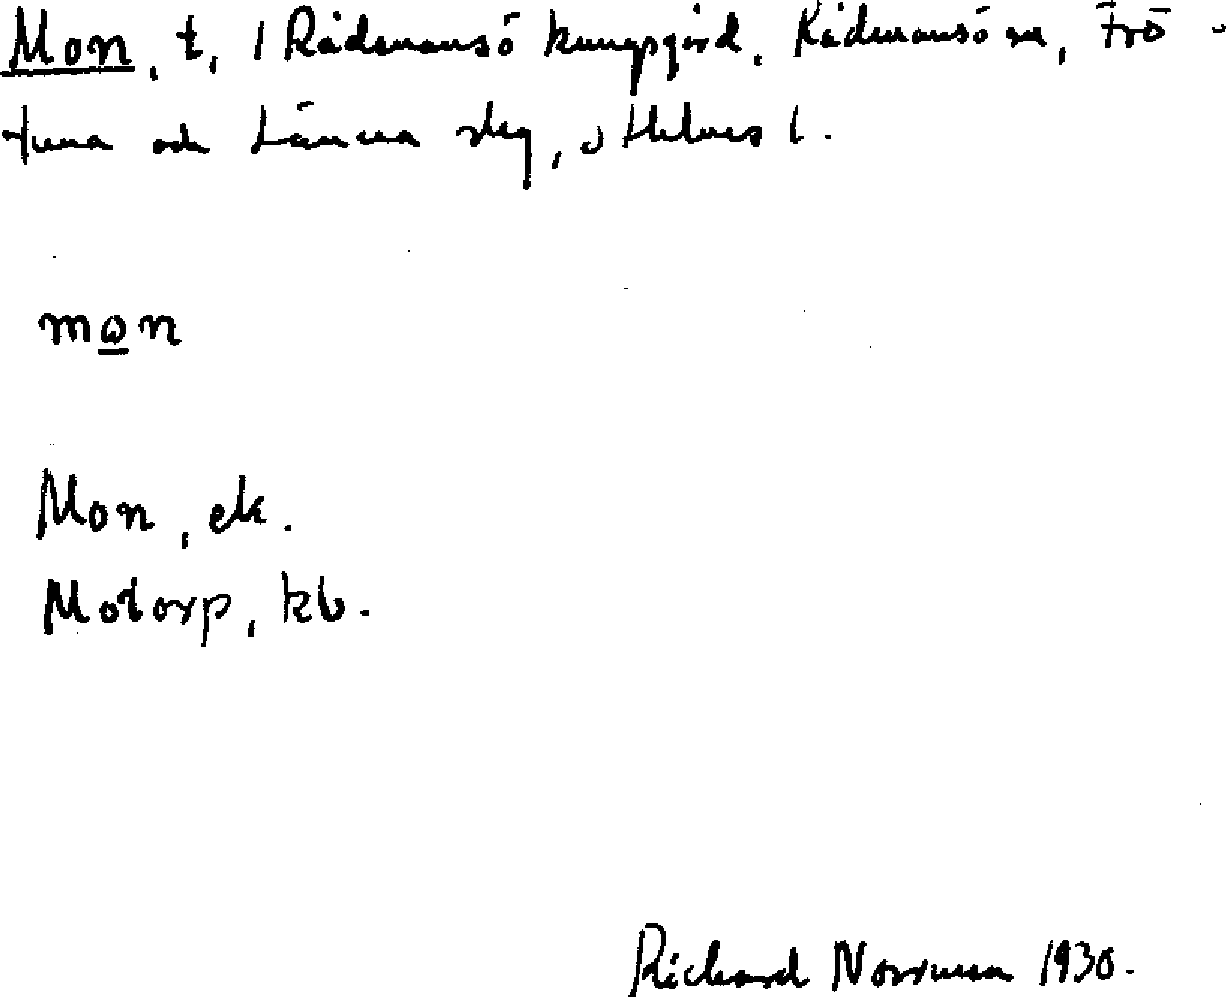 Mon, t, / Rådmansö kungsgård, Rådmansö sn, Frö-
tuna och Länna skg, Sthlms l.
mon
Mon, ek.
Motorp, kb.
Richard Norrman 1930.